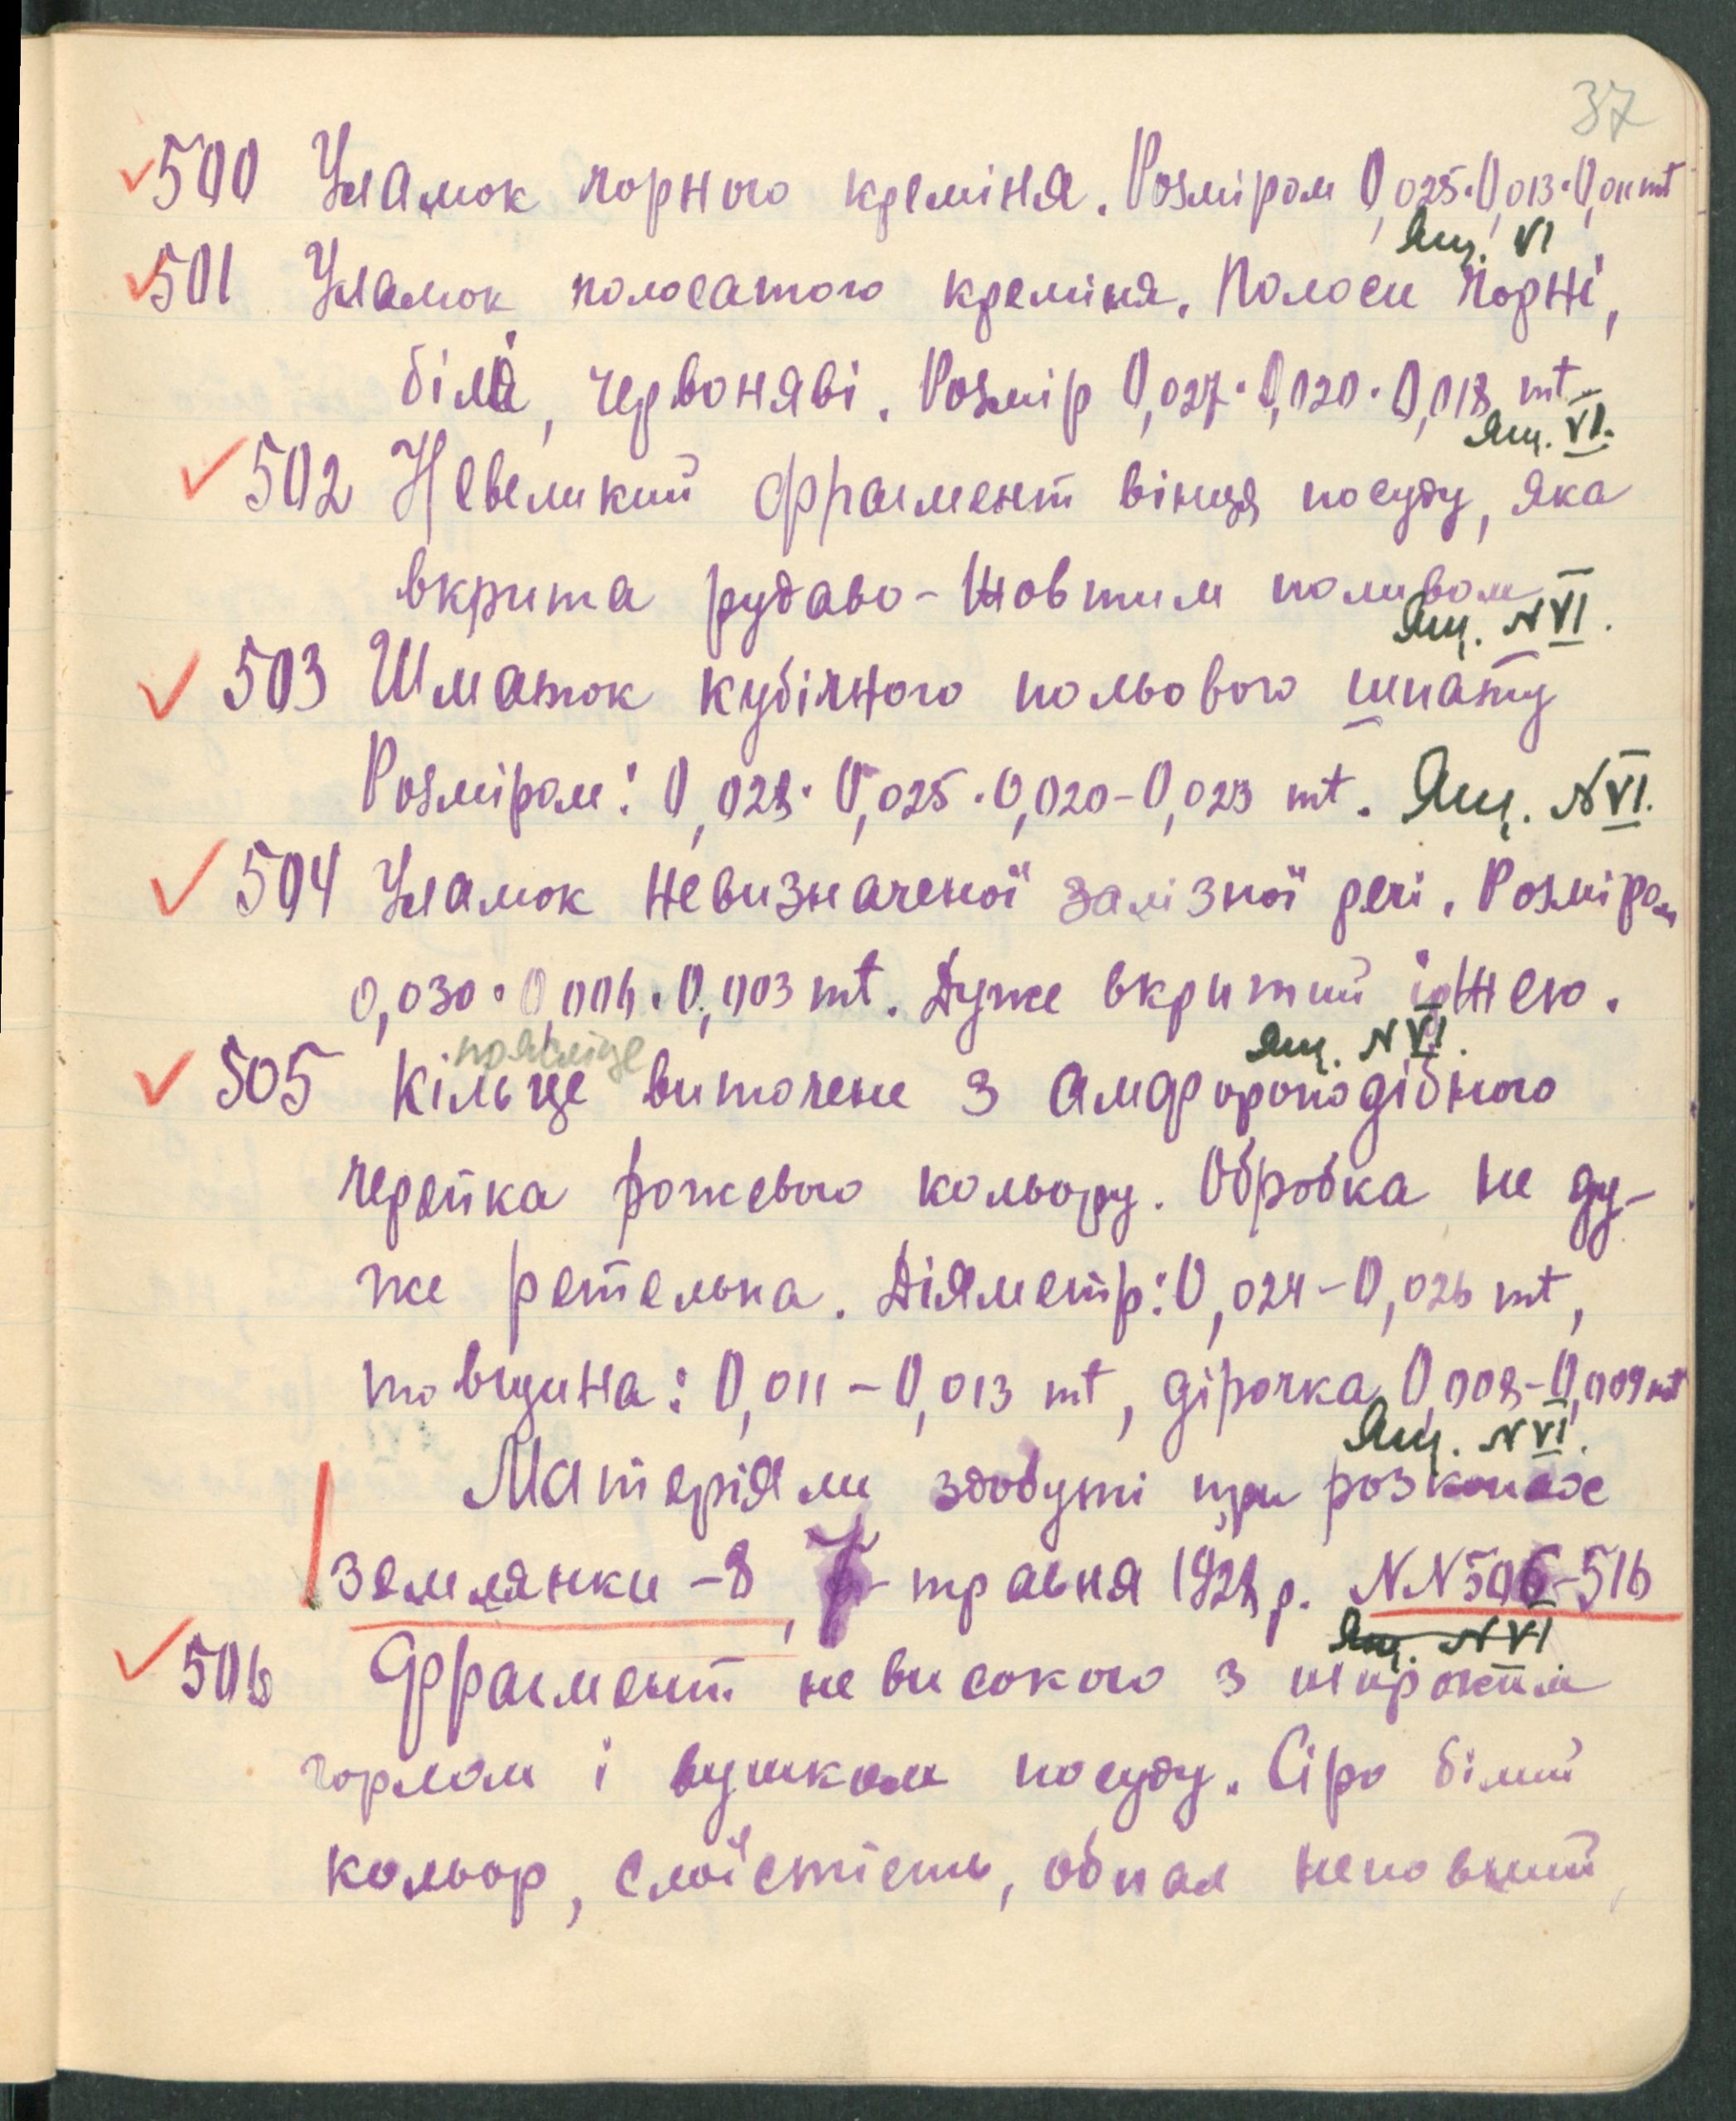 37
500 Уламок чорного кремiня. Розмiром 0,025·0,013·0,011 mt
Ящ. VI
501 Уламок полосатого кремiня. Полоси чорнi,
бiлi, червонявi. Розмiр 0,027·0,020·0,018 mt
Ящ. VI.
502 Невеликий фрагмент вiнця посуду, яка
вкрита рудаво-жовтим поливом
Ящ. N VI.
503 Шматок кубiчного польового шпату
Розмiром: 0,028·0,025·0,020-0,023 mt. Ящ. N VI.
504 Уламок невизначеної залiзної речi. Розмiром
0,030·0,006·0,003 mt. Дуже вкритий iржею.
Ящ. N VI.
пряслiце
505 Кiльце виточене з амфороподiбного
черепка рожевого кольору. Обробка не ду-
же ретельна. Дiяметр: 0,024-0,026 mt,
товщина: 0,011-0,013 mt, дiрочка 0,008-0,009 mt
Ящ. N VI.
Матерiяли здобутi при розкопах
землянки -8, 7 травня 1928 р. NN 506-516
Ящ. N VI
506 Фрагмент невисокого з широким
горлом i вушком посуду. Сiро бiлий
кольор, слоїстiсть, обпал неповний,